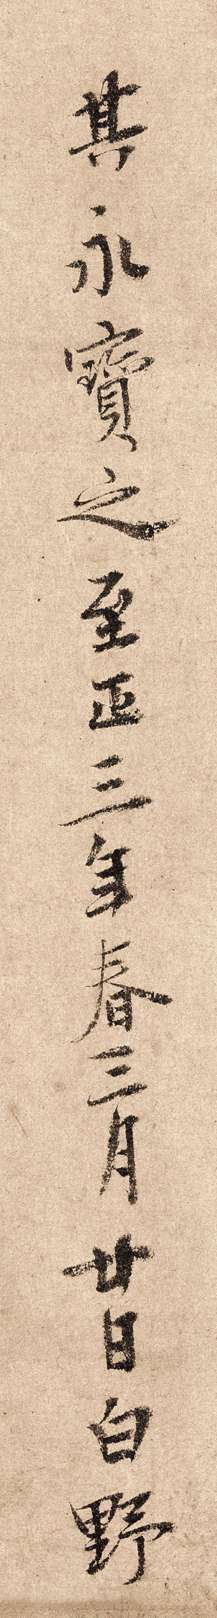 其永寶之至正三年春三月廿日白野